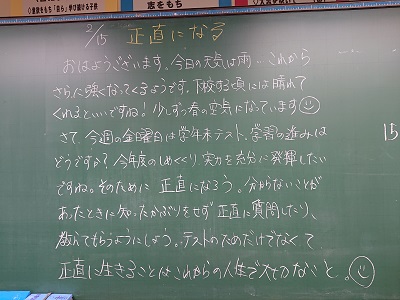 ◎意欲をもち「自ら」学び続ける子供
志をもち
2/15 正直になる
おはようございます。今日の天気は雨…これから
さらに強くなってくるようです。下校する頃には晴れて
くれるといいですね!少しずつ春の空気になっています☺
さて、今週の金曜日は学年末テスト、学習の進みは
どうですか?今年度のしめくくり、実力を充分に発揮したい
ですね。そのために正直になろう。分からないことが
あったときに知ったかぶりをせず正直に質問したり、
教えてもらうようにしよう。テストのためだけでなくて
正直に生きることはこれからの人生で大切なこと。☺
15